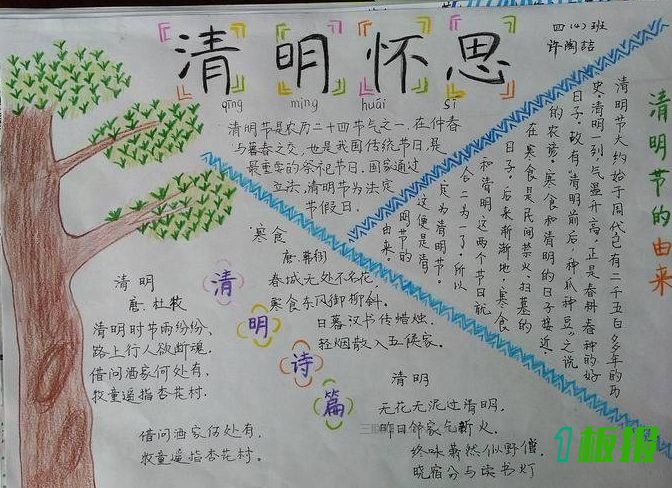 清明怀思
qīng míng huái sī
四(4)班
许陶喆
清明节是农历二十四节气之一,在仲春
与暮春之交,也是我国传统节日,是
最重要的祭祀节日。国家通过
立法,清明节为法定
节假日。
清明节的由来
清明节大约始于周代已有二千五百多年的历
史。清明一到气温升高,正是春耕春种的好
日子,故有"清明前后,种瓜种豆"之说
的农谚。寒食和清明的日子接近,
在寒食是民间禁火、扫墓的
日子,后来渐渐地,寒食
和清明这两个节日就
合二为一了。所以
定为清明节。
这便是清
明节的
由来。
清明
唐.杜牧
清明时节雨纷纷,
路上行人欲断魂,
借问酒家何处有,
牧童遥指杏花村.
借问酒家何处有,
牧童遥指杏花村。
清明诗篇
寒食
唐.韩翃
春城无处不名花,
寒食东风御柳斜。
日暮汉书传蜡烛,
轻烟散入五侯家。
清明
无花无泥过清明.
昨日邻家乞新火,
终味萧然似野僧,
晓窗分与读书灯
1板报